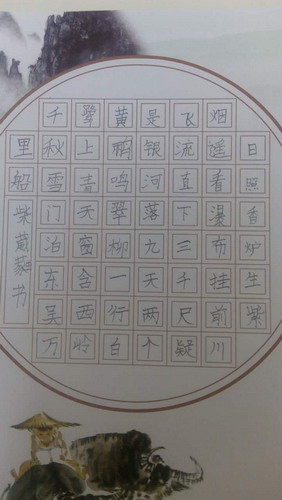 日照香炉生紫
烟遥看瀑布挂前川
飞流直下三千尺疑
是银河落九天两个
黄鹂鸣翠柳一行白
鹭上青天窗含西岭
千秋雪门泊东吴万
里船
柴葳蕤书